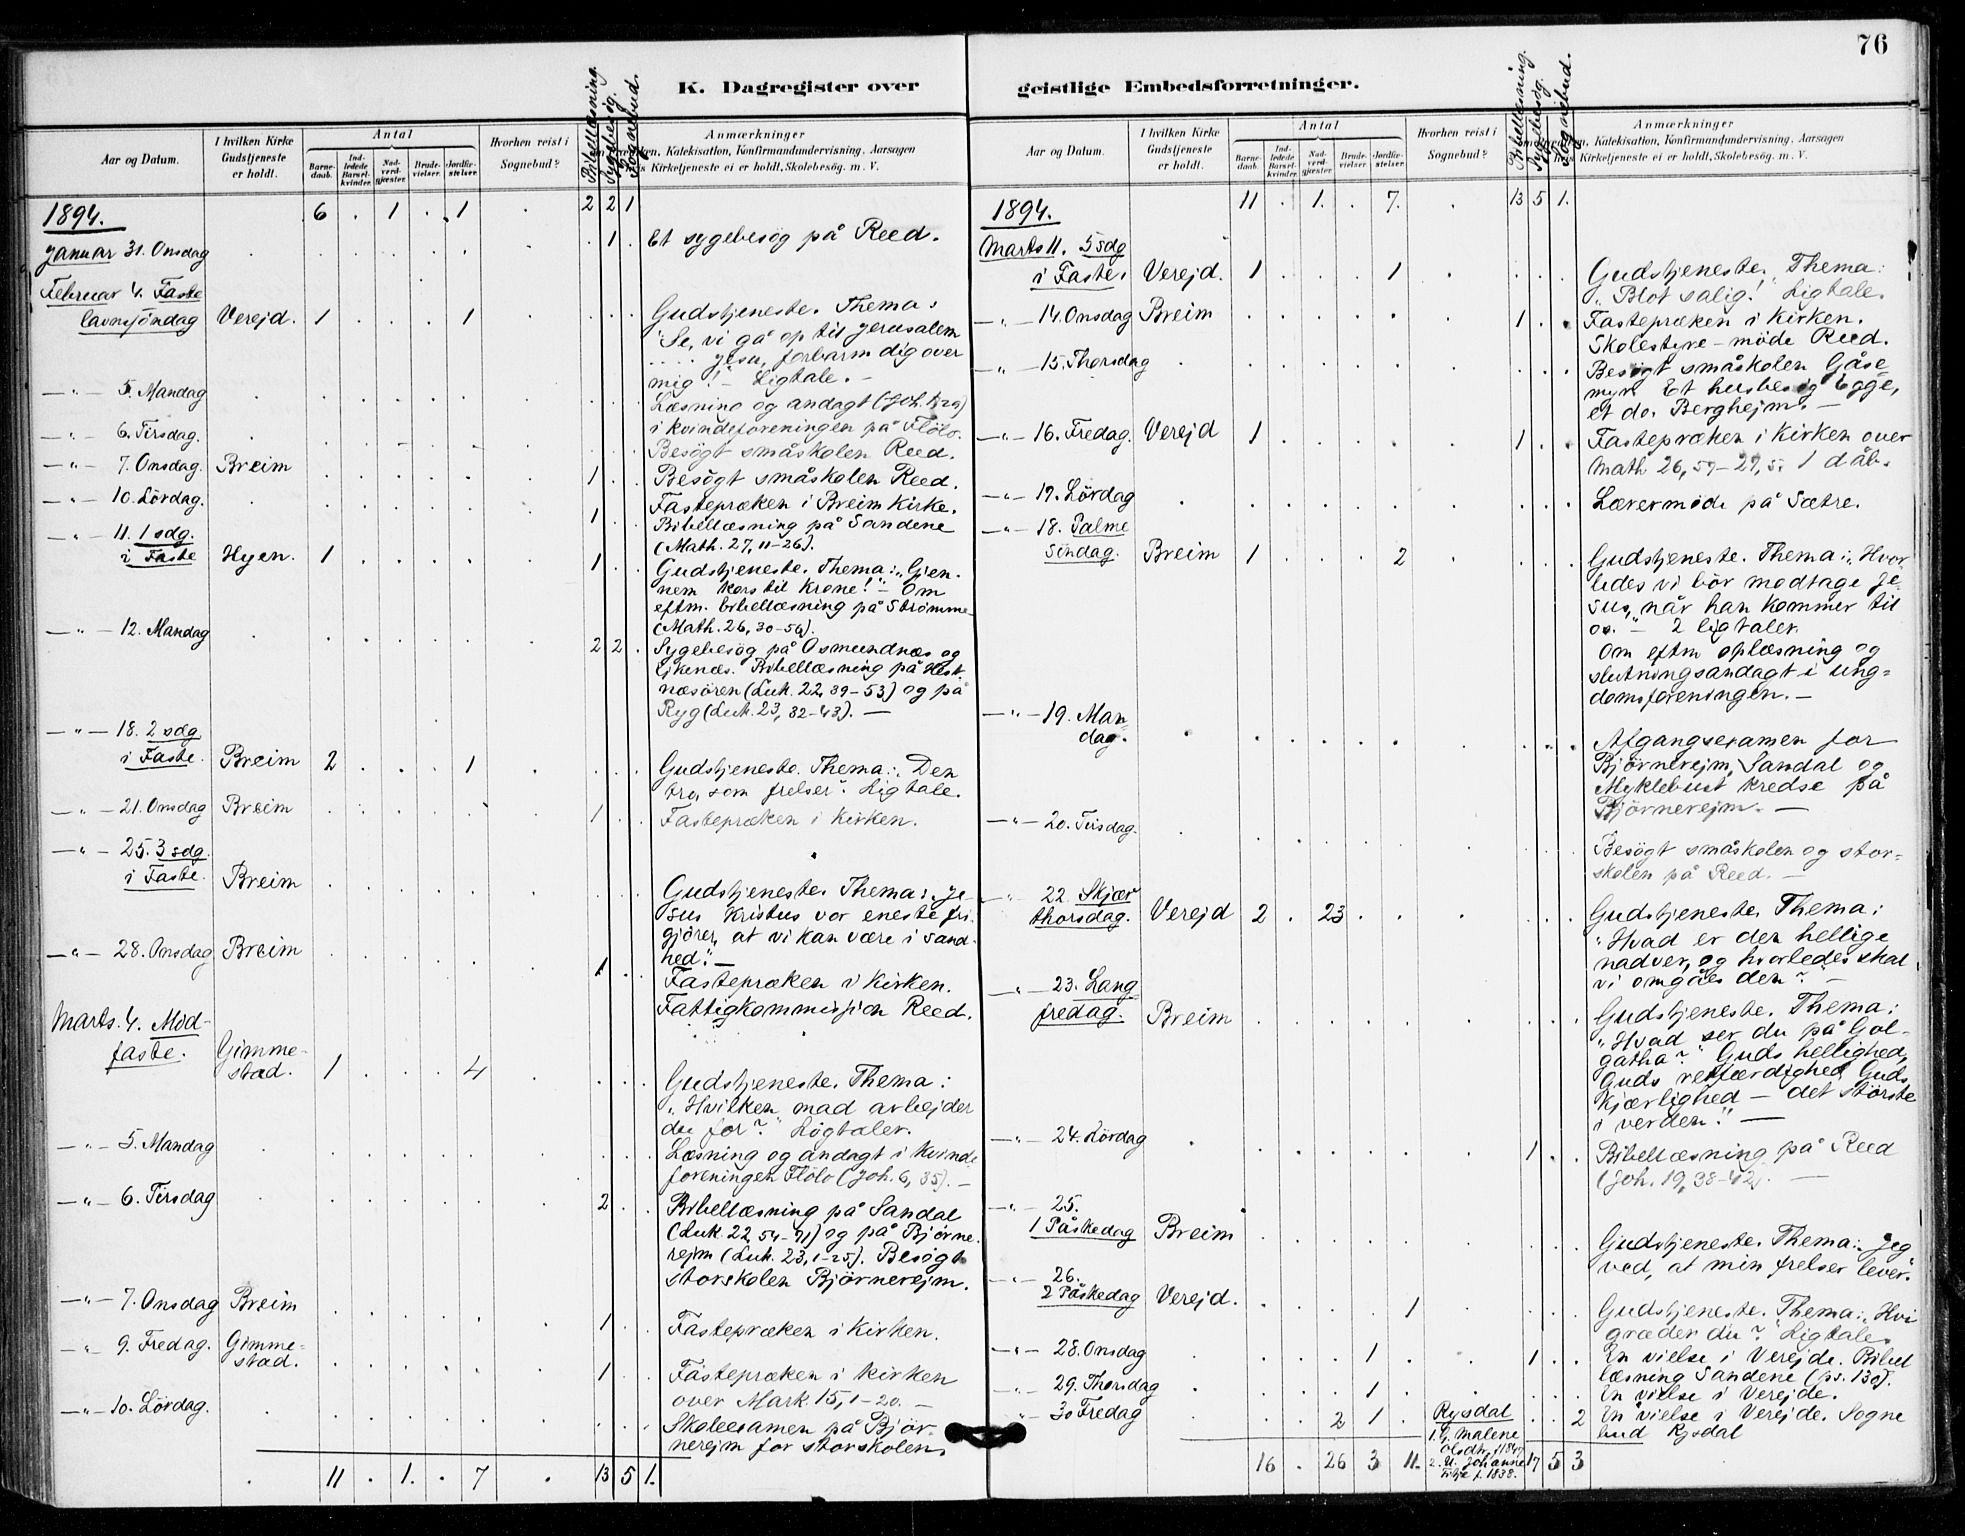 76
K. Dagregister over
geistlige Embedsforretninger.
Aar og Datum.
I hvilken Kirke Gudstjeneste er holdt.
Antal
Barnedaab.
Indledede Barselkvinder.
Nadverdgjæster.
Brudevielser.
Jordfæstelser.
Hvorhen reist i Sognebud?
Bibellæsning.
Sygebesøg.
Sognebud.
Anmærkninger
Katekisation, Konfirmandundervisning. Aarsagen
Kirketjeneste ei er holdt, Skolebesøg. m. V.
1894. 6 . 1 . 1 . 2 2 1
Januar 31. Onsdag . 1 . Et sygebesøg på Reed.
Februar 4. Faste
lavnsjöndag Verejd. 1 . . . 1 . . . Gudstjeneste. Thema:
"Se, vi gå op til Jerusalem
.... Jesu, forbarm dig over
mig!" - Ligtale. -
— " — 5. Mandag Læsning og andagt (Joh. 1, 29)
i kvindeforeningen på Flölo.
— " — 6. Tirsdag. Besögt småskolen Reed.
— " — 7. Onsdag. Breim 1 . . Besögt småskolen Reed.
Fastepræken i Breim Kirke.
— " — 10. Lördag. 1 . . Bibellæsning på Sandene
(Math. 27, 11-26).
— " — 11. 1 sdg.
i Faste Hyen. 1 . . . . . 1 . . Gudstjeneste. Thema: "Gjen-
nem kors til krone!" - Om
eftm. bibellæsning på Strömme
(Math. 26, 30-56).
— " — 12. Mandag 2 2 . Sygebesøg på Osmundnæs og
Eikenæs. Bibellæsning på Hest-
næsören (Luk. 22, 39-53) og på
Ryg (Luk. 23, 32-43). —
— " — 18. 2 sdg.
i Faste. Breim 2 . . . 1 . . . . Gudstjeneste. Thema: "Den
tro, som frelser". Ligtale.
— " — 21. Onsdag Breim 1 . . Fastepræken i Kirken.
— " — 25. 3 sdg.
i Faste. Breim Gudstjeneste. Thema: "Je-
sus Kristus vor eneste fri-
gjörer, at vi kan være i sand-
hed". —
— " — 28. Onsdag Breim 1 . . Fastepræken i Kirken.
Fattigkommission Reed.
Marts. 4. Mid-
faste. Gimme-
stad. 1 . . . 4 . . . . Gudstjeneste. Thema:
"Hvilken mad arbejder
du for?" Ligtaler.
— " — 5. Mandag Læsning og andagt i Kvinde
foreningen Flölo (Joh. 6, 35). —
— " — 6. Tirsdag 2 . . Bibellæsning på Sandal
(Luk. 22, 54-71) og på Bjørne-
rejm (Luk. 23, 1-25). Besögt
storskolen Bjørnerejm.
— " — 7. Onsdag Breim 1 . . Fastepræken i Kirken.
— " — 9. Fredag. Gimme-
stad. 1 . . Fastepræken i Kirken
over Mark. 15, 1-20. —
— " — 10. Lördag. Skoleexamen på Bjør-
nerejm for storskolen.
. 11 . 1. . 7 . 13 5 1.
Aar og Datum.
I hvilken Kirke Gudstjeneste er holdt.
Antal
Barnedaab.
Indledede Barselkvinder.
Nadverdgjæster.
Brudevielser.
Jordfæstelser.
Hvorhen reist i Sognebud?
Bibellæsning.
Sygebesøg.
Sognebud.
Anmærkninger
Katekisation, Konfirmandundervisning. Aarsagen
Kirketjeneste ei er holdt, Skolebesøg. m. V.
1894. 11 . 1. . 7. . 13 5 1.
Marts 11. 5 sdg
i Faste. Verejd. 1 . . . 1 . . . . Gudstjeneste. Thema:
"Blot salig!" Ligtale.
— " — 14. Onsdag Breim 1 . . Fastepræken i Kirken.
Skolestyre-möde Reed.
— " — 15. Thorsdag Besögt småskolen Gåse-
myr. Et husbesøg Egge,
et do. Berghejm. —
— " — 16. Fredag. Verejd 1 . . . . . 1 . . Fastepræken i Kirken over
Math 26, 57-27, 5. 1 dåb.
— " — 17. Lördag Lærermöde på Sætre.
— " — 18. Palme
söndag. Breim 1 . . . 2 . . . . Gudstjeneste. Thema: "Hvor-
ledes vi bör modtage Je-
sus, når han kommer til
os." - 2 ligtaler.
Om eftm oplæsning og
slutningsandagt i ung-
domsforeningen. —
— " — 19. Man-
dag. Afgangsexamen for
Bjørnerejm, Sandal og
Myklebust kredse på
Bjørnerejm. —
— " — 20. Tirsdag. Besögt småskolen og stor-
skolen på Reed. —
" 22. Skjær
thorsdag. Verejd 2 . 23 . . . . . . Gudstjeneste. Thema:
"Hvad er den hellige
nadver, og hvorledes skal
vi omgåes den?" —
— " — 23. Lang
fredag. Breim Gudstjeneste. Thema:
"Hvad ser du på Gol-
gatha?" Guds hellighed,
Guds retfærdighed, Guds
Kjærlighed - det störste
i verden". —
— " — 24. Lördag 1 . . Bibellæsning på Reed
(Joh. 19, 38-42). —
— " — 25.
1 Påskedag Breim Gudstjeneste. Thema: "Jeg
ved, at min frelser lever".
— " — 26.
2 Påskedag Verejd. . . . . 1 . . . . Gudstjeneste. Thema: "Hvi
græder du?" Ligtale.
— " — 28. Onsdag 1 . . 1 . . En vielse i Verejde. Bibel
læsning Sandene (ps. 130).
" — 29. Thorsdag 1 En vielse i Verejde.
" — 30 Fredag 2 1 . Rysdal . . 2 En vielse i Verejde. Sogne
bud Rysdal
1. G. Malene
Olsdtr. f. 1847
2. U. Johanne
Titje f. 1838.
16 . 26 3 11. 17 5 3